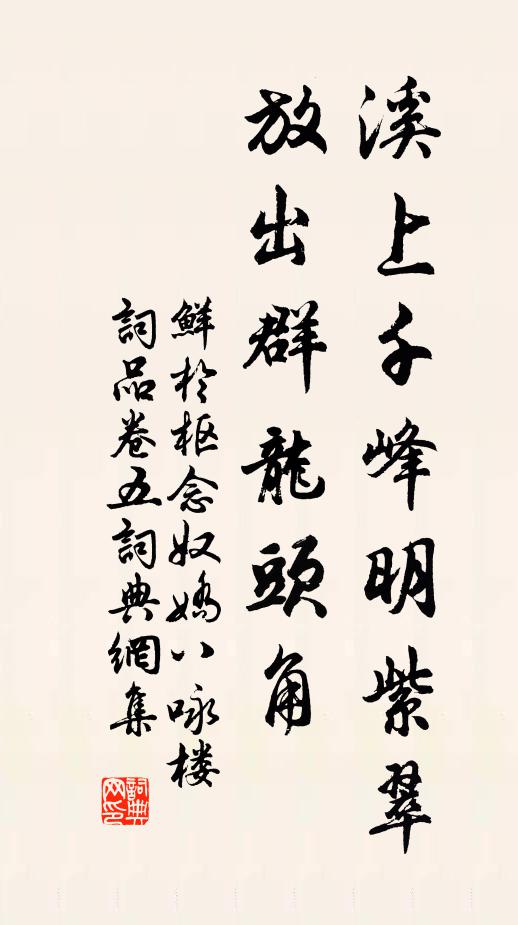 溪上千峰明紫翠
放出群龍頭角
鮮於枢念奴嬌八咏楼
詞品卷五詞典網集
詞典網印